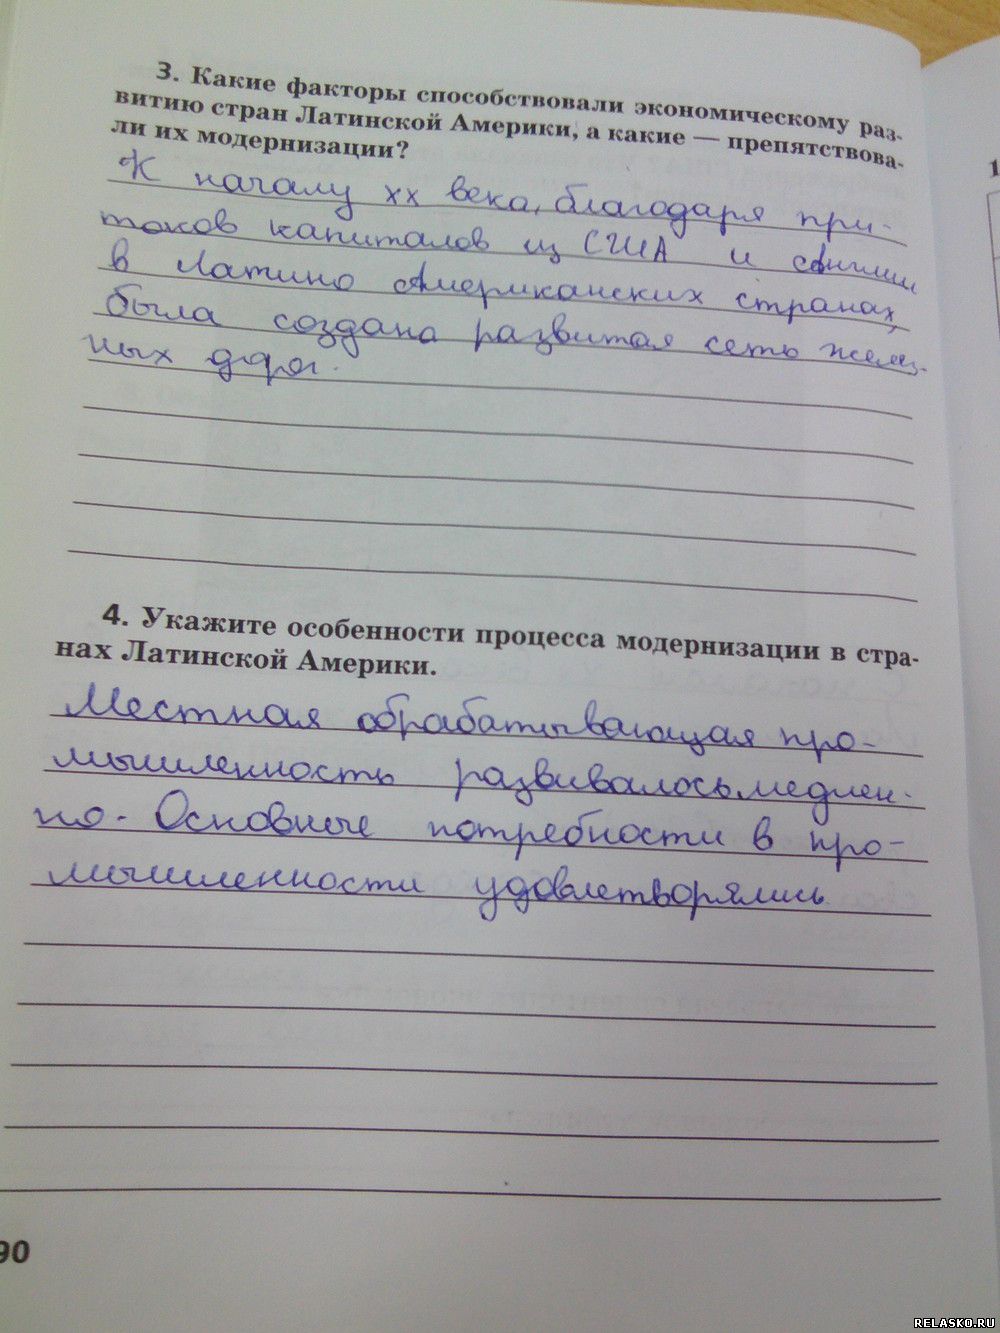 3. Какие факторы способствовали экономическому раз-
витию стран Латинской Америки, а какие — препятствова-
ли их модернизации?
К началу XX века, благодаря при-
токов капиталов из США и Англии
в Латино Американских странах,
была создана развитая сеть желез-
ных дорог.
4. Укажите особенности процесса модернизации в стра-
нах Латинской Америки.
Местная обрабатывающая про-
мышленность развивалось медлен-
но. Основные потребности в про-
мышленности удовлетворялись
90
1
RELASKO.RU